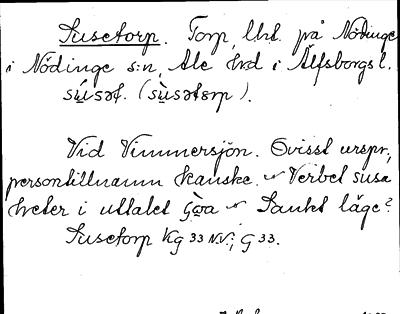 Susetorp. Torp, lht. på Nödinge
i Nödinge s:n, Ale hrd i Älfsborgs l.
sú̀sət. (sù̀sətɔrp).
Vid Vimmersjön. Ovisst urspr.,
persontillnamn kanske. Verbet susa
heter i uttalet Sankt läge?
Susetorp Kg 33 N.V.; G 33.